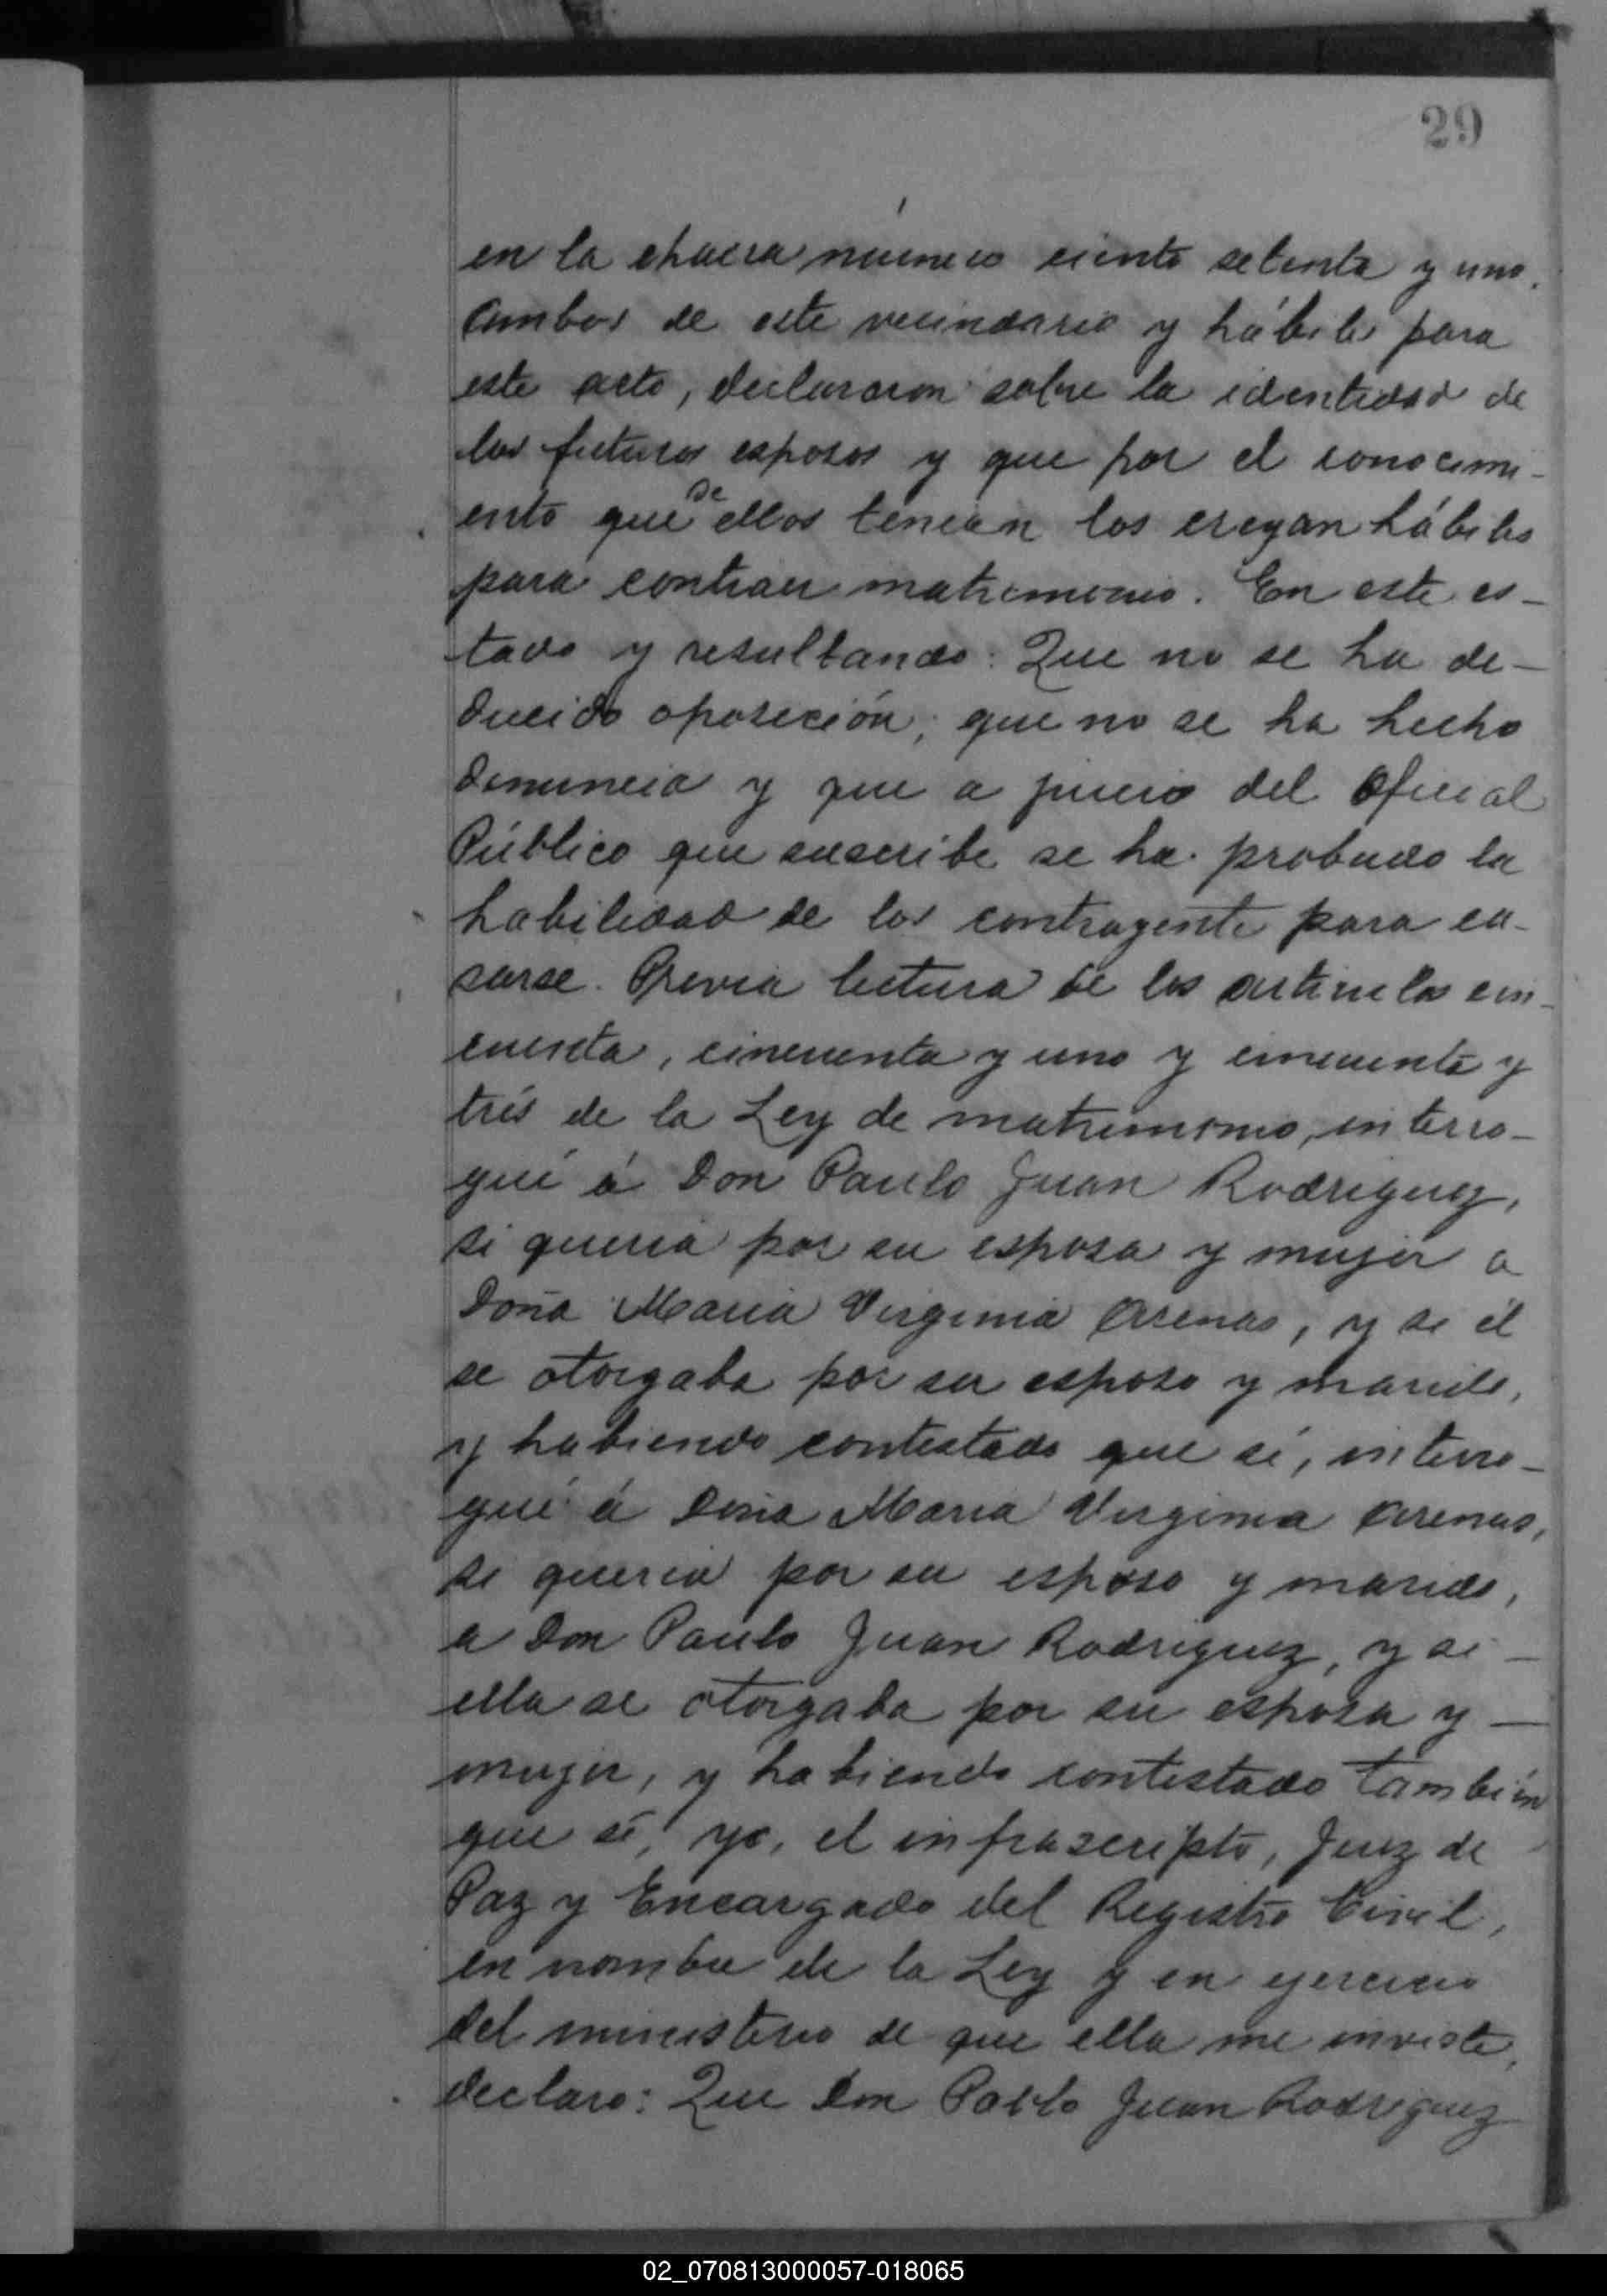 29
en la chacra número ciento setenta y uno,
ambos de este vecindario y hábiles para
este acto, declararon sobre la identidad de
los futuros esposos y que por el conocimi-
ento que de ellos tenian los creyan hábiles
para contraer matrimonio. En este es-
tado y resultando: Que no se ha de-
ducido oposición; que no se ha hecho
denuncia y que a juicio del Oficial
Público que suscribe se ha probado la
habilidad de los contrayente para ca-
sarse. Previa lectura de los artículos cin-
cuenta, cincuenta y uno y cincuenta y
trés de la Ley de matrimonio, interro-
gué á Don Paulo Juan Rodriguez,
si queria por su esposa y mujer a
Doña Maria Virginia Arenas, y si él
se otorgaba por su esposo y marido,
y habiendo contestado que sí, interro-
gué á Doña Maria Virginia Arenas,
si queria por su esposo y marido,
a Don Paulo Juan Rodriguez, y si —
ella se otorgaba por su esposa y —
mujer, y habiendo contestado también
que sí, yo, el infrascripto, Juez de
Paz y Encargado del Registro Civil,
en nombre de la Ley y en ejercicio
del ministerio de que ella me inviste,
declaro: Que Don Pablo Juan Rodriguez
02_070813000057-018065